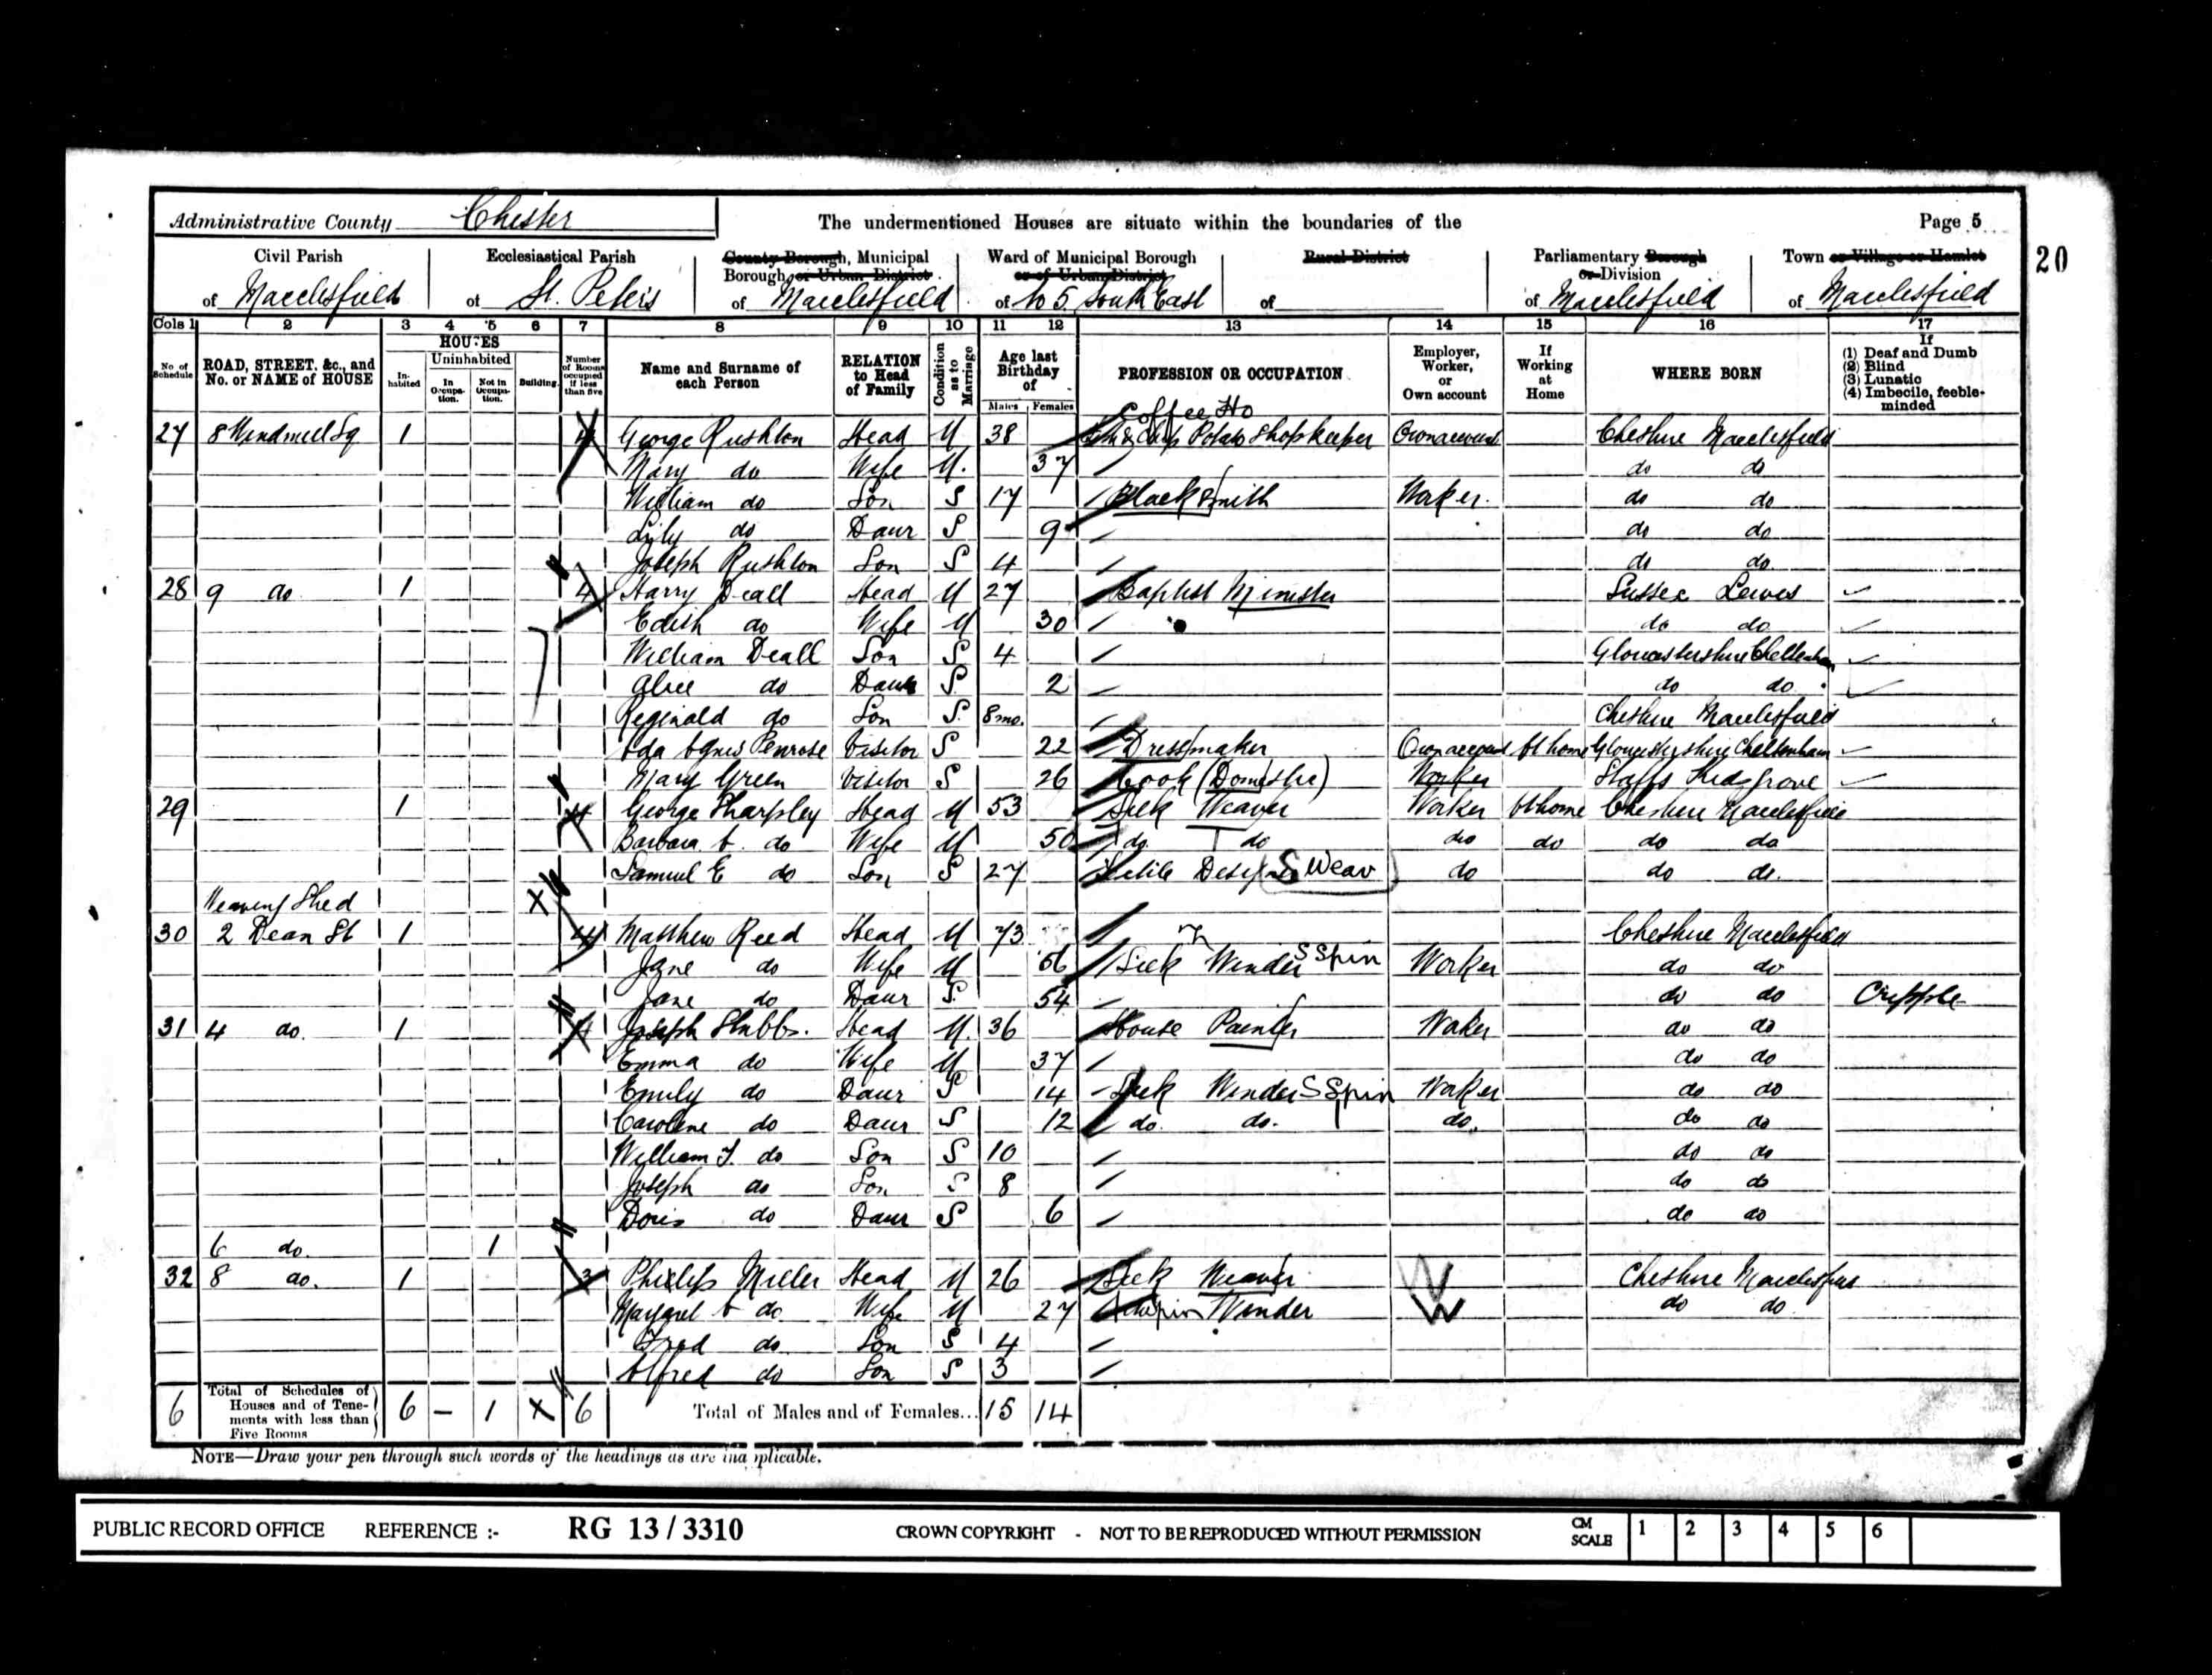 Administrative County Chester The undermentioned Houses are situate within the boundaries of the Page 5
20
Civil Parish Ecclesiastical Parish County Borough, Municipal Ward of Municipal Borough Rural District Parliamentary Borough Town or Village or Hamlet
Borough or Urban District or of Urban District or Division
of Macclesfield of St. Peters of Macclesfield of No 5. South East of of Macclesfield of Macclesfield
Cols 1 2 3 4 5 6 7 8 9 10 11 12 13 14 15 16 17
No of Schedule ROAD, STREET, &c., and No. or NAME of HOUSE HOUSES Inhabited Uninhabited In Occupation. Not in Occupation. Building Number of Rooms occupied if less than five Name and Surname of each Person RELATION to Head of Family Condition as to Marriage Age last Birthday of Males Females PROFESSION OR OCCUPATION Employer, Worker, or Own account If Working at Home WHERE BORN If (1) Deaf and Dumb (2) Blind (3) Lunatic (4) Imbecile, feeble-minded
Coffee Ho
27 8 Windmill Sq 1 4 George Rushton Head M 38 Potato Shopkeeper Own account Cheshire Macclesfield
Mary do Wife M. 37 do do
William do Son S 17 Blacksmith Worker. do do
Lily do Daur S 9 do do
Joseph Rushton Son S 4 do do
28 9 do 1 4 Harry Deall Head M 27 Baptist Minister Sussex Lewes
Edith do Wife M 30 do do
William Deall Son S 4 Gloucestershire Cheltenham
Alice do Daur S 2 do do
Reginald do Son S. 8 mo. Cheshire Macclesfield
Ada Agnes Penrose Visitor S 22 Dressmaker Own account At home Gloucestershire Cheltenham
Mary Green Visitor S 26 Cook (Domestic) Worker Staffs Kidsgrove
29 1 4 George Sharpley Head M 53 Silk Weaver Worker At home Cheshire Macclesfield
Barbara A. do Wife M 50 do do do do do do
Samuel E do Son S 27 Textile Designer S Weav do do do
Weaving Shed X
30 2 Dean St 1 4 Matthew Reed Head M 73 Cheshire Macclesfield
Jane do Wife M 66 Silk Winder S Spin Worker do do
Jane do Daur S. 54 do do Cripple
31 4 do. 1 4 Joseph Stubbs. Head M. 36 House Painter Worker do do
Emma do Wife M 37 do do
Emily do Daur S 14 Silk Winder S Spin Worker do do
Caroline do Daur S 12 do. do. do. do do
William T. do Son S 10 do do
Joseph do Son S 8 do do
Doris do Daur S 6 do do
6 do. 1
32 8 do. 1 3 Phillip Miller Head M 26 Silk Weaver W Cheshire Macclesfield
Margaret A do Wife M 27 Winder W do do
Fred do Son S 4
Alfred do Son S 3
6 Total of Schedules of Houses and of Tenements with less than Five Rooms 6 — 1 X 6 Total of Males and of Females... 15 14
NOTE—Draw your pen through such words of the headings as are inapplicable.
PUBLIC RECORD OFFICE REFERENCE :- RG 13 / 3310 CROWN COPYRIGHT - NOT TO BE REPRODUCED WITHOUT PERMISSION CM SCALE 1 2 3 4 5 6